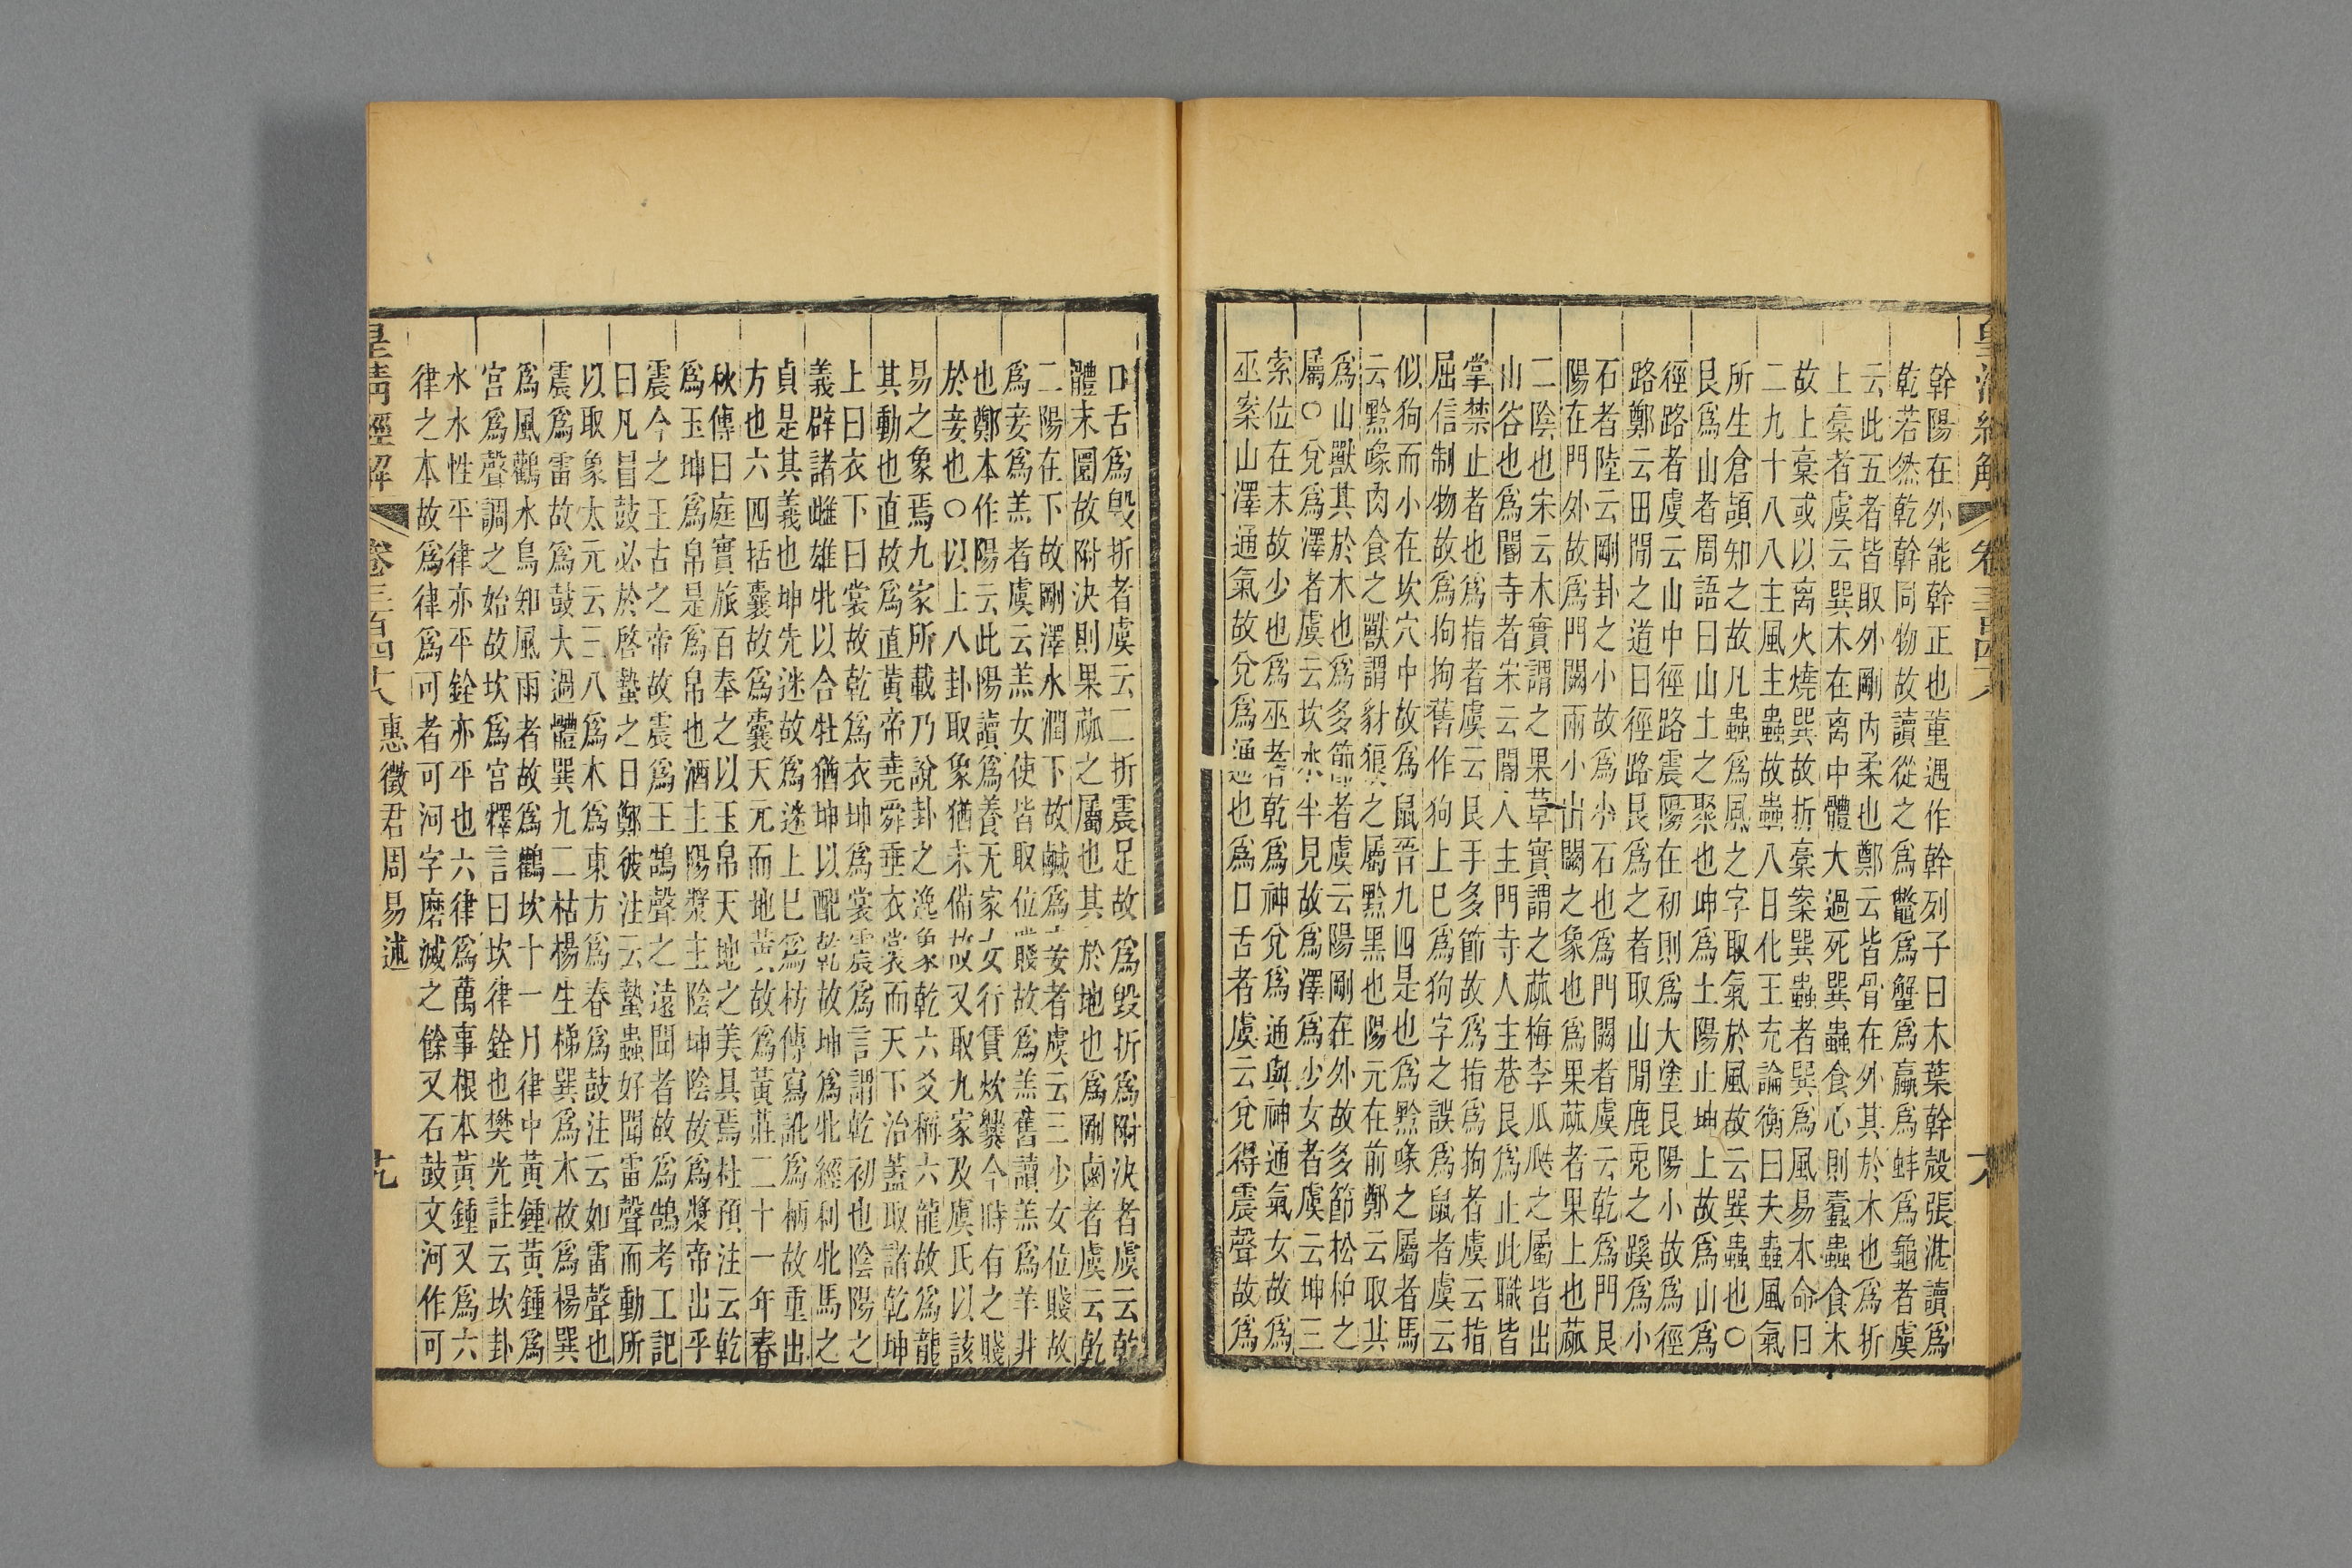 幹陽在外能幹正也董遇作幹列子曰木葉幹殼張湛讀爲
乾若然乾幹同物故讀從之爲鼈爲蟹爲蠃爲蚌爲龜者虞
云此五者皆取外剛內柔也鄭云皆骨在外其於木也爲折
上槀者虞云巽木在离中體大過死巽蟲食心則蠹蟲食木
故上槀或以离火燒巽故折槀案巽蟲者巽爲風易本命曰
二九十八八主風主蟲故蟲八日化王充論衡曰夫蟲風氣
所生倉頡知之故凡蟲爲風之字取氣於風故云巽蟲也〇
艮爲山者周語曰山土之聚也坤爲土陽止坤上故爲山爲
徑路者虞云山中徑路震陽在初則爲大塗艮陽小故爲徑
路鄭云田閒之道曰徑路艮爲之者取山閒鹿兎之蹊爲小
石者陸云剛卦之小故爲小石也爲門闕者虞云乾爲門艮
陽在門外故爲門闕兩小山闕之象也爲果蓏者果上也蓏
二陰也宋云木實謂之果草實謂之蓏梅李瓜瓞之屬皆出
山谷也爲閽寺者宋云閽人主門寺人主巷艮爲止此職皆
掌禁止者也爲指者虞云艮手多節故爲指爲拘者虞云指
屈信制物故爲拘拘舊作狗上已爲狗字之誤爲鼠者虞云
似狗而小在坎穴中故爲鼠晉九四是也爲黔喙之屬者馬
云黔喙肉食之獸謂豺狼之屬黔黑也陽元在前鄭云取其
爲山獸其於木也爲多節者虞云陽剛在外故多節松柏之
屬〇兌爲澤者虞云坎水半見故爲澤爲少女者虞云坤三
索位在末故少也爲巫者乾爲神兌爲通與神通氣女故爲
巫案山澤通氣故兌爲通也爲口舌者虞云兌得震聲故爲
口舌爲毀折者虞云二折震足故爲毀折爲附決者虞云乾
體末圜故附決則果蓏之屬也其於地也爲剛鹵者虞云乾
二陽在下故剛澤水潤下故鹹爲妾者虞云三少女位賤故
爲妾爲羔者虞云羔女使皆取位賤故爲羔舊讀羔爲羊非
也鄭本作陽云此陽讀爲養无家女行賃炊爨今時有之賤
於妾也〇以上八卦取象猶未備故又取九家及虞氏以該
易之象焉九家所載乃說卦之逸象乾六爻稱六龍故爲龍
其動也直故爲直黃帝堯舜垂衣裳而天下治蓋取諸乾坤
上曰衣下曰裳故乾爲衣坤爲裳震爲言謂乾初也陰陽之
義辟諸雌雄牝以合牡猶坤以配乾故坤爲牝經利牝馬之
貞是其義也坤先迷故爲迷上巳爲枋傳寫訛爲柄故重出
方也六四括囊故爲囊天元而地黃故爲黃莊二十一年春
秋傳曰庭實旅百奉之以玉帛天地之美具焉杜預注云乾
爲玉坤爲帛是爲帛也酒主陽漿主陰坤陰故爲漿帝出乎
震今之王古之帝故震爲王鵠聲之遠聞者故爲鵠考工記
曰凡冒鼓必於啓蟄之日鄭彼注云蟄蟲好聞雷聲而動所
以取象太元云三八爲木爲東方爲春爲鼓注云如雷聲也
震爲雷故爲鼓大過體巽九二枯楊生梯巽爲木故爲楊巽
爲風鸛水鳥知風雨者故爲鸛坎十一月律中黃鍾黃鍾爲
宮爲聲調之始故坎爲宮釋言曰坎律銓也樊光註云坎卦
水水性平律亦平銓亦平也六律爲萬事根本黃鍾又爲六
律之本故爲律爲可者可河字磨滅之餘又石鼓文河作可
皇清經解 卷三百四十八 惠徵君周易述 十九